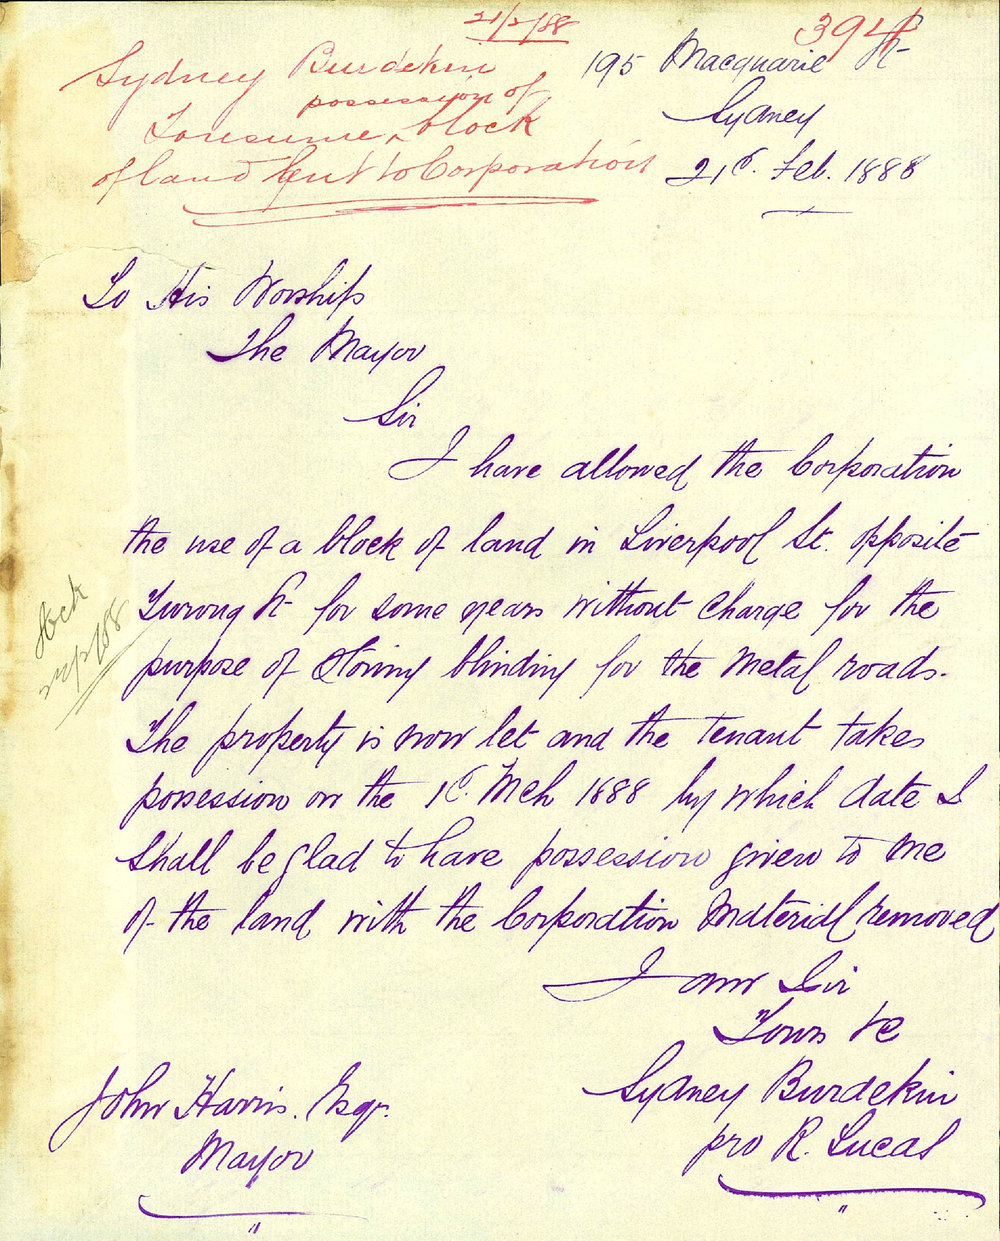 21/2/88
394
Sydney Burdekin
possession of
To resume ^ block
of land lent to Corporation
195 Macquarie St
Sydney
21st. Feb. 1888
To His Worship
The Mayor
Sir
I have allowed the Corporation
the use of a block of land in Liverpool St. opposite
Yurong St for some years without charge for the
purpose of storing blinding for the Metal roads.
The property is now let and the tenant takes
possession on the 1st. Mch 1888 by which date I
shall be glad to have possession given to me
of the land with the Corporation Material removed
I am Sir
Yours &c
Sydney Burdekin
pro R. Lucas
John Harris. Esqr.
Mayor